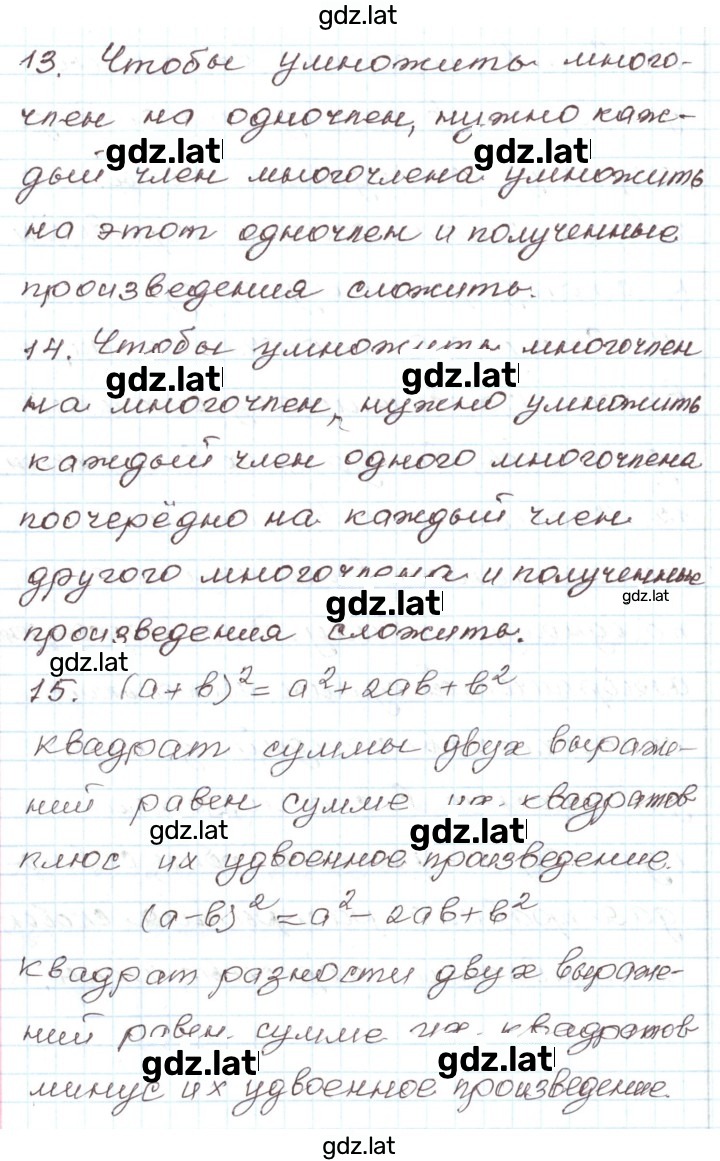 gdz.lat
13. Чтобы умножить много-
член на одночлен, нужно каж-
gdz.lat gdz.lat
дый член многочлена умножить
на этот одночлен и полученные
произведения сложить.
14. Чтобы умножить многочлен
gdz.lat gdz.lat
на многочлен, нужно умножить
каждый член одного многочлена
поочерёдно на каждый член
другого многочлена и полученные
gdz.lat gdz.lat
произведения сложить.
gdz.lat
15. (a+b)²=a²+2ab+b²
квадрат суммы двух выраже-
ний равен сумме их квадратов
gdz.lat gdz.lat
плюс их удвоенное произведение.
(a-b)²=a²-2ab+b²
квадрат разности двух выраже-
ний равен сумме их квадратов
gdz.lat gdz.lat
минус их удвоенное произведение.
gdz.lat